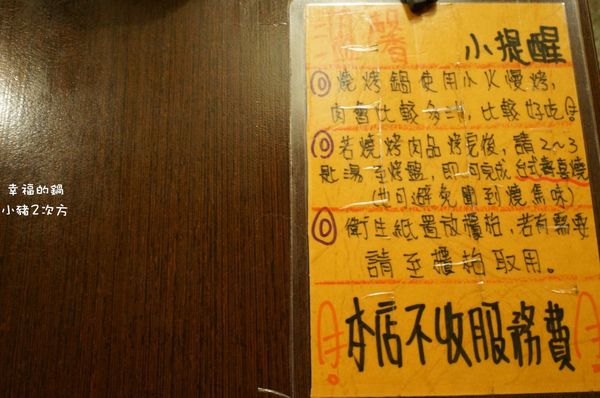 溫馨
小提醒
◎燒烤鍋使用小火慢烤,
肉會比較多汁,比較好吃
◎若燒烤肉品烤完後,請2~3
匙湯至烤盤,即可完成台式壽喜燒
(也可避免聞到燒焦味)
◎衛生紙置放櫃枱,若有需要
請至櫃枱取用。
本店不收服務費
幸福的鍋
小豬2次方